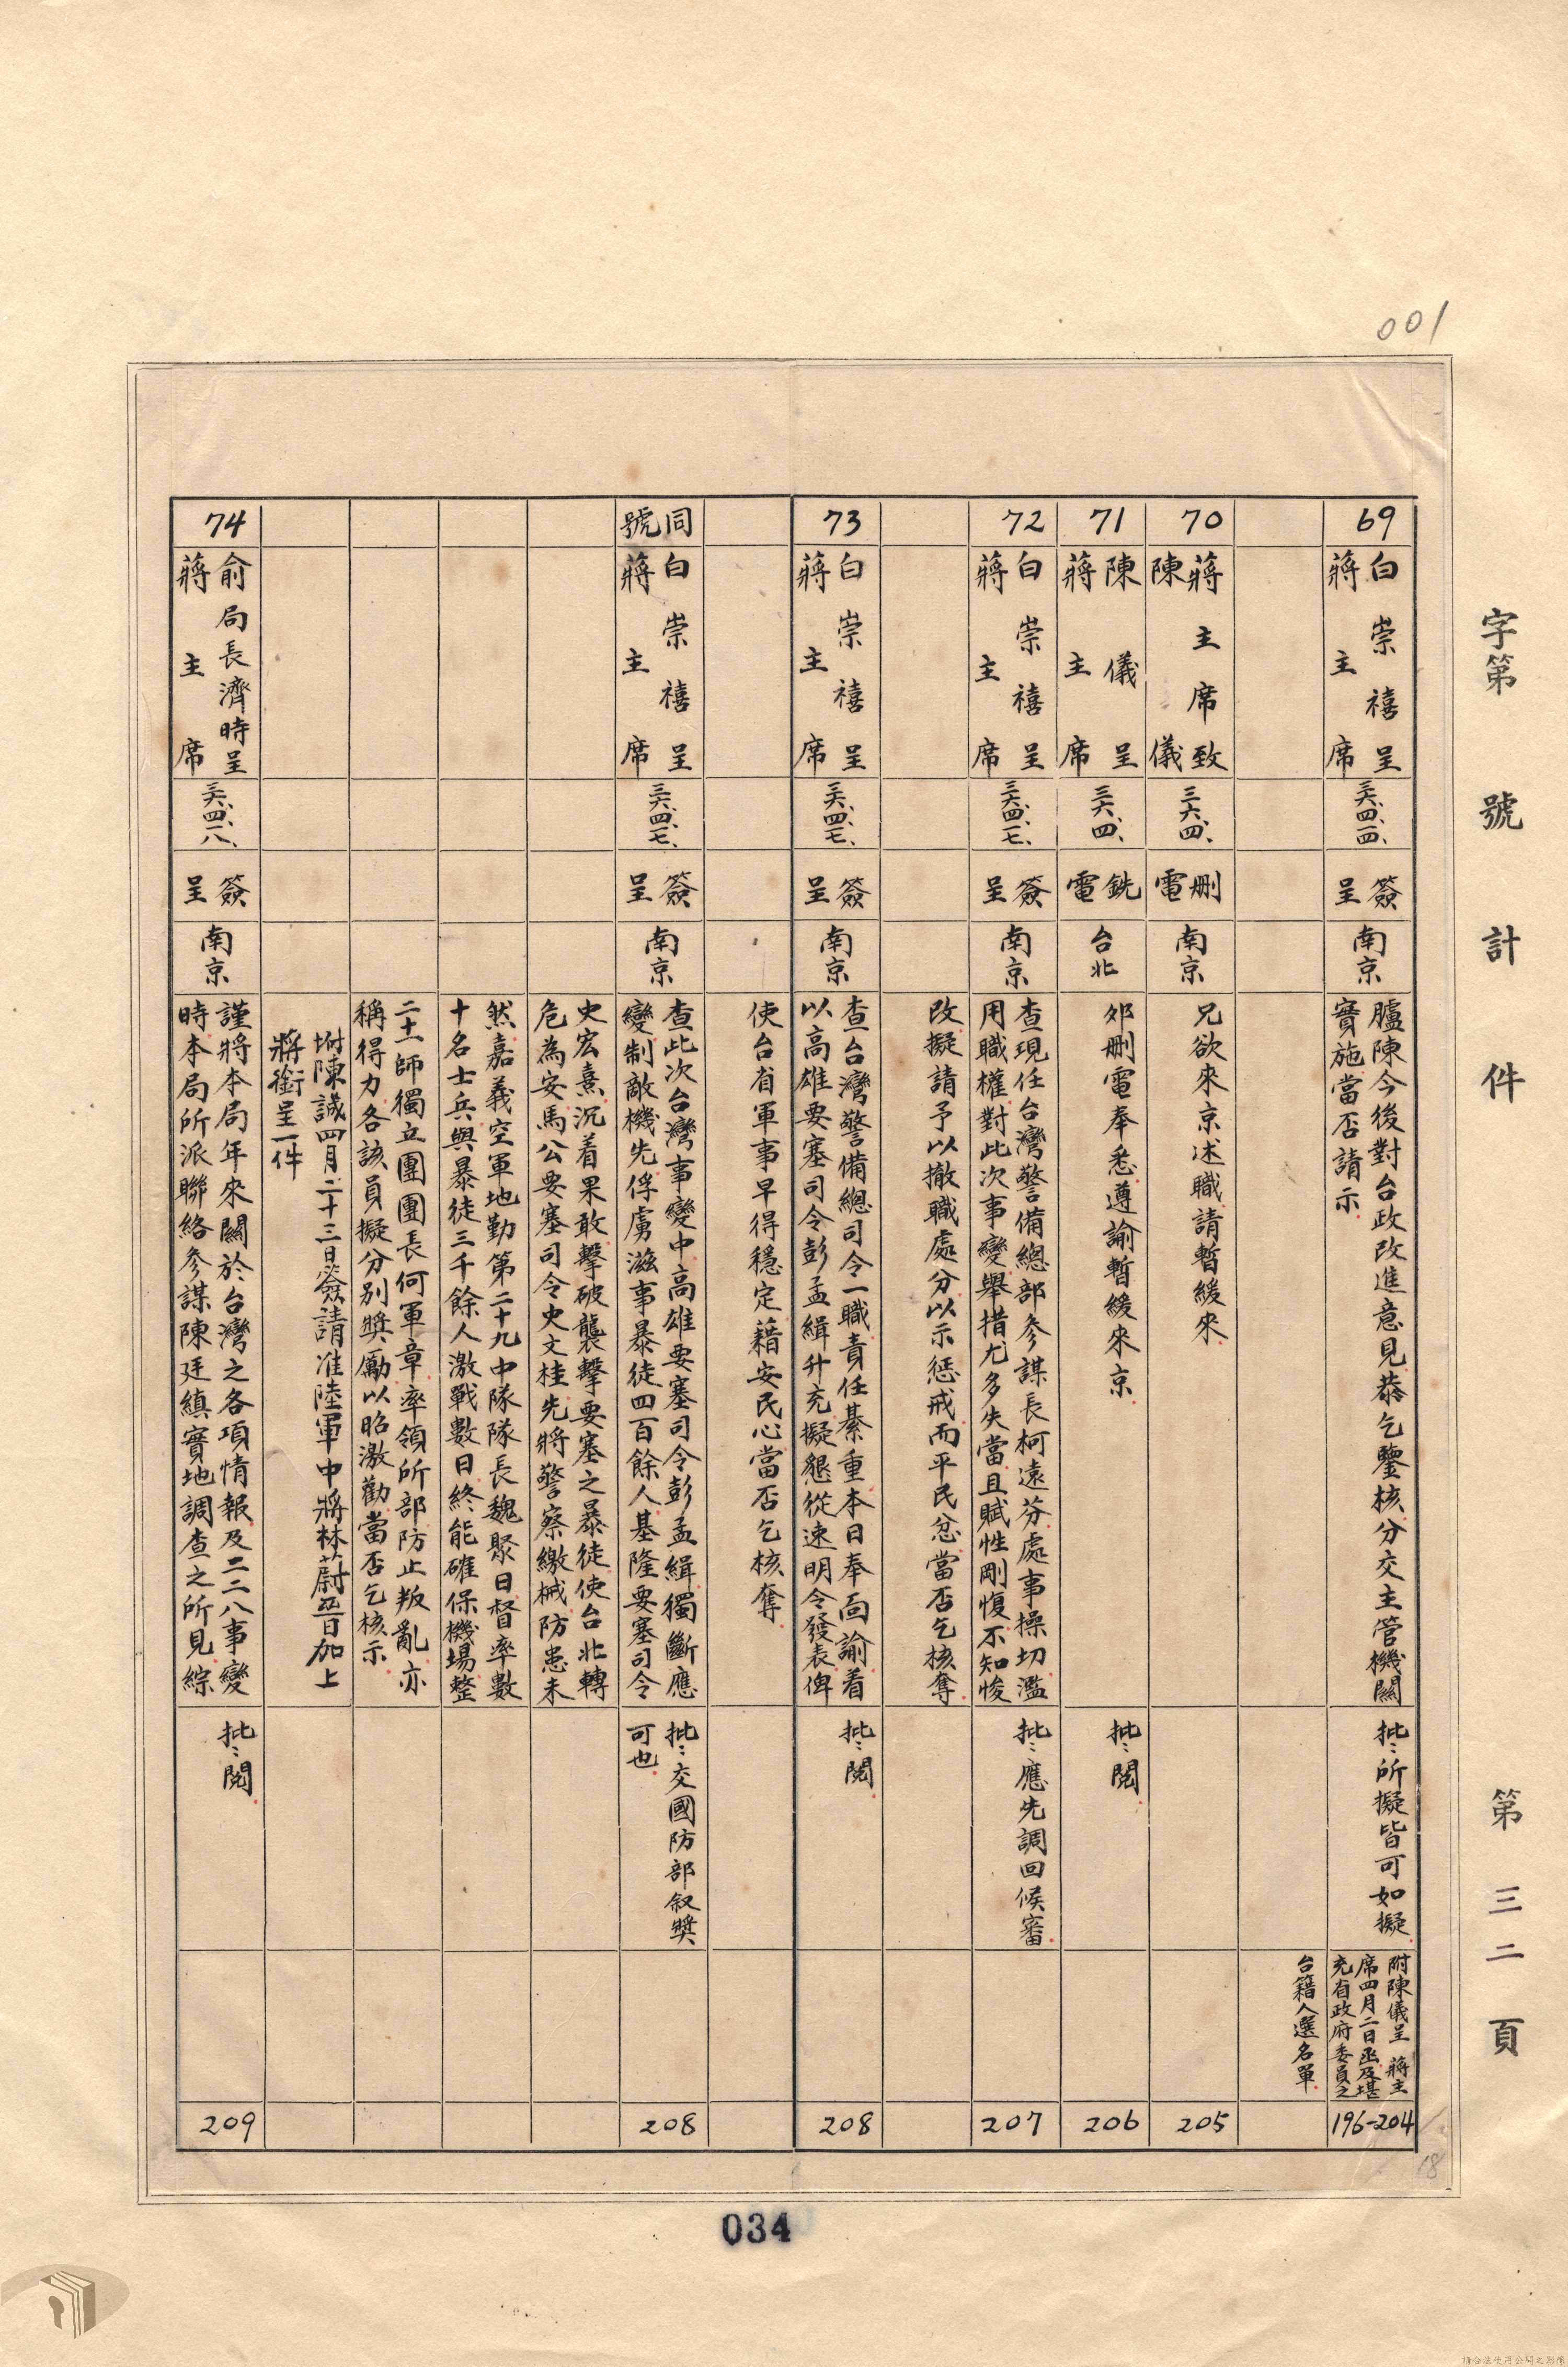 001
字第　號　計　件　第三二頁
69
白崇禧呈
蔣主席
三六、四、四、
簽呈
南京
臚陳今後對台政改進意見恭乞鑒核分交主管機關
實施當否請示
批：所擬皆可如擬
附陳儀呈　蔣主
席四月二日函及堪
充省政府委員之
台籍人選名單
196-204
70
蔣主席致
陳儀
三六、四、
刪電
南京
兄欲來京述職請暫緩來
205
71
陳儀呈
蔣主席
三六、四、
銑電
台北
郊刪電奉悉遵諭暫緩來京
批：閱
206
72
白崇禧呈
蔣主席
三六、四、七、
簽呈
南京
查現任台灣警備總部參謀長柯遠芬處事操切濫
用職權對此次事變舉措尤多失當且賦性剛愎不知悛
改擬請予以撤職處分以示懲戒而平民忿當否乞核奪
批：應先調回候審
207
73
白崇禧呈
蔣主席
三六、四、七、
簽呈
南京
查台灣警備總司令一職責任綦重本日奉面諭着
以高雄要塞司令彭孟緝升充擬懇從速明令發表俾
使台省軍事早得穩定藉安民心當否乞核奪
批：閱
208
同號
白崇禧呈
蔣主席
三六、四、七、
簽呈
南京
查此次台灣事變中高雄要塞司令彭孟緝獨斷應
變制敵機先俘虜滋事暴徒四百餘人基隆要塞司令
史宏熹沉着果敢擊破襲擊要塞之暴徒使台北轉
危為安馬公要塞司令史文桂先將警察繳械防患未
然嘉義空軍地勤第二十九中隊隊長魏聚日督率數
十名士兵與暴徒三千餘人激戰數日終能確保機場整
二十一師獨立團團長何軍章率領所部防止叛亂亦
稱得力各該員擬分別獎勵以昭激勸當否乞核示
附陳誠四月二十三日簽請准陸軍中將林蔚五百加上
將銜呈一件
批：交國防部敘獎
可也
208
74
俞局長濟時呈
蔣主席
三六、四、一八、
簽呈
南京
謹將本局年來關於台灣之各項情報及二二八事變
時本局所派聯絡參謀陳廷縝實地調查之所見綜
批：閱
209
18
034
請合法使用公開之影像